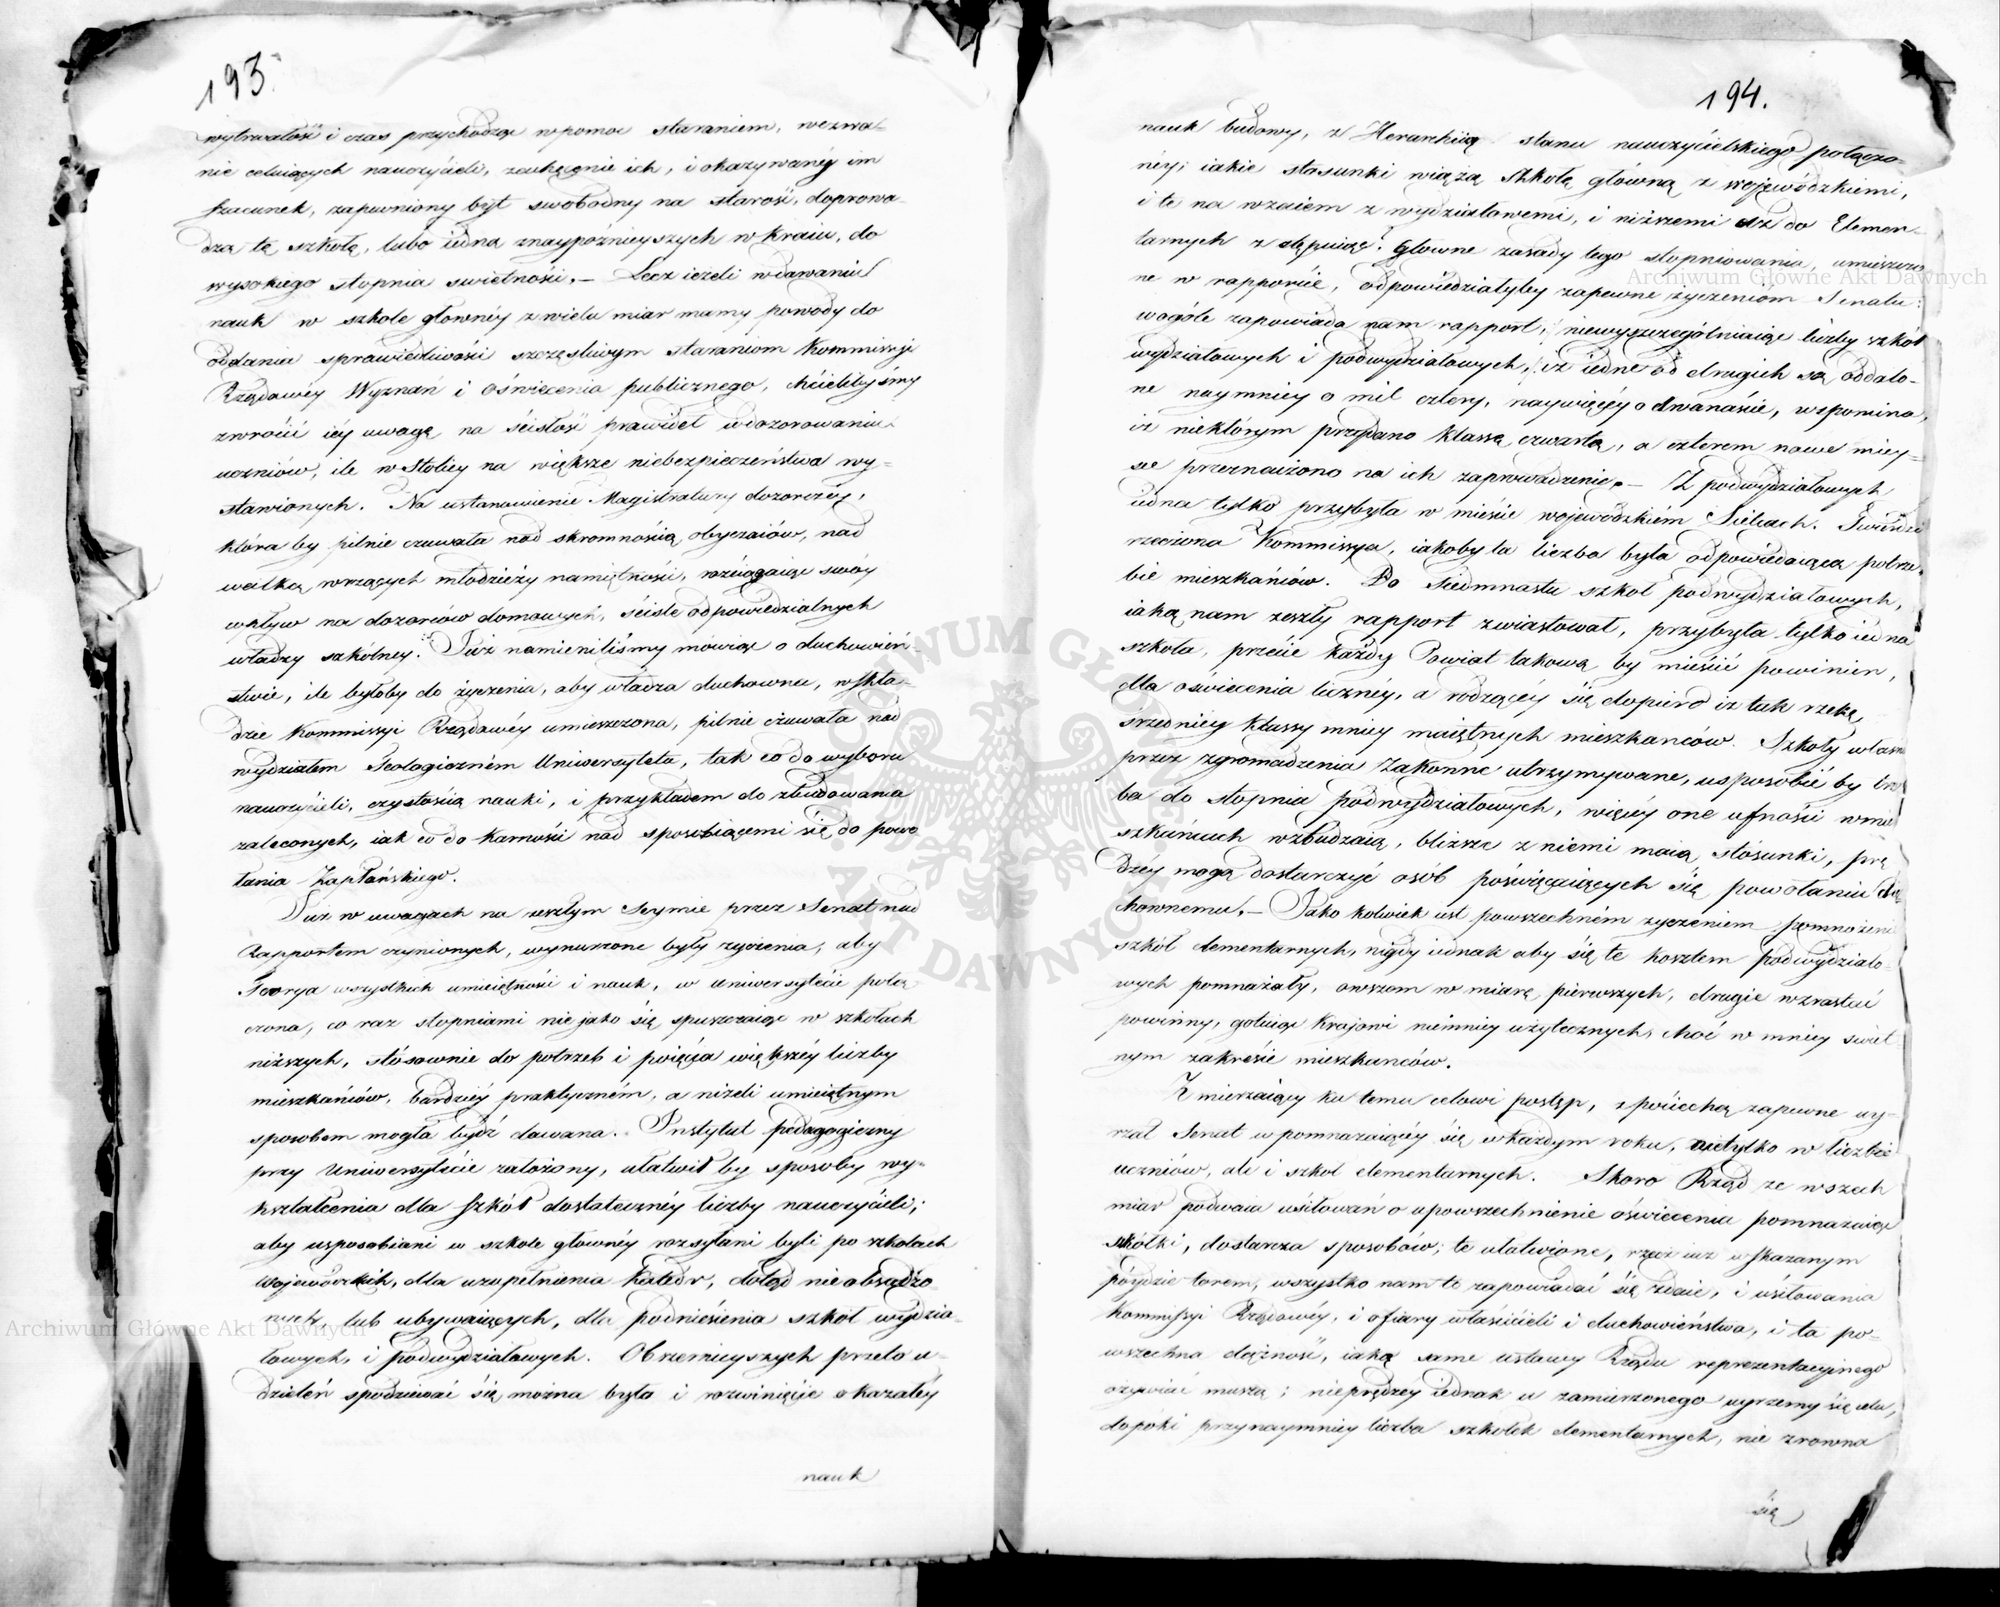 193.
wytrwałość i czas przychodząc w pomoc staraniem, wezwa-
nie celuiących nauczycieli, zachęcenie ich, i okazywanéy im
szacunek, zapewniony byt swobodny na starość, doprowa-
dzą tę szkołę, lubo iedną znaypóźnieyszych w Kraiu, do
wysokiego stopnia swietności. — Lecz ieżeli w dawaniu
nauk w szkole głownéy z wielu miar mamy powody do
oddania sprawiedliwości szczęsliwym staraniom Kommissyi
Rządowéy Wyznań i Oświecenia publicznego, chcielibyśmy
zwrócić iéy uwagę na scisłość prawideł w dozorowaniu
uczniów, ile w Stolicy na większe niebezpieczeństwa wy-
stawionych. Na ustanowienie Magistratury dozorczéy,
któraby pilnie czuwała nad skromnością obyczaiów, nad
walką wrzących młodzieży namiętności, rozciągaiąc swóy
wpływ na dozorców domowych, sciśle odpowiedzialnych
władzy szkolney. Już namieniliśmy mówiąc o duchowień-
stwie, ile byłoby do życzenia, aby władza duchowna, w skła-
dzie Kommissyi Rządowéy umieszczona, pilnie czuwała nad
wydziałem Teologiczném Uniwersytetu, tak co do wyboru
nauczycieli, czystością nauki, i przykładem do zbudowania
zaleconych, iak co do karności nad sposobiącemi się do powo
łania Kapłańskiego.
Już w uwagach na zeszłym Seymie przez Senat nad
Rapportem czynionych, wynurzone były życzenia, aby
Teorya wszystkich umieiętności i nauk, w Uniwersytecie połą
czona, co raz stopniami nie jako się spuszczaiąc w szkołach
niższych, stósownie do potrzeb i poięcia większéy liczby
mieszkańców, bardziéy praktyczném, a niżeli umieiętnym
sposobem mogła bydź dawana. Instytut pedagogiczny
przy Uniwersytecie założony, ułatwił by sposoby wy-
kształcenia dla Szkół dostatecznéy liczby nauczycieli;
aby usposobiani w szkole głownéy rozsyłani byli po szkołach
Wojewódzkich, dla uzupełnienia Katedr, dotąd nie obsadzo
nych, lub ubywaiących, dla podniesienia szkół wydzia-
łowych, i podwydziałowych. Obszernieyszych przeto u-
dzieleń spodziewać się można było i rozwinięcie okazałey
nauk
194.
nauk budowy, z Hierarchiią stanu nauczycielskiego połączo-
néy; iakie stosunki wiążą szkołę główną z wojewódzkiemi,
i te na wzaiem z wydziałowemi, i niższemi aż do Elemen-
tarnych z stępuiąc. Głowne zasady tego stopniowania, umieszczo
ne w rapporcie, odpowiedziałyby zapewne życzeniom Senatu:
wogóle zapowiada nam rapport, niewyszczególniaiąc liczby szkół
wydziałowych i podwydziałowych, iż iedne od drugich są oddalo-
ne naymniéy o mil cztery, naywięcéy o dwanaście, wspomina,
iż niektórym przydano klassę czwartą, a czterem nowe miey-
sce przeznaczono na ich zaprowadzenie. — Z podwydziałowych
iedna tylko przybyła w mieście wojewódzkiém Sielcach. Twierdzi
rzeczona Kommissya, iakoby ta liczba była odpowiedaiącą potrze-
bie mieszkańców. Do siedmnastu szkół podwydziałowych,
iaką nam zeszły rapport zwiastował, przybyła tylko iedna
szkoła, przecie każdy Powiat takową by mieścić powinien,
dla oświecenia licznéy, a rodzącéy się dopiero iż tak rzekę,
średniéy klassy mniéy maiętnych mieszkańców. Szkoły własn
przez zgromadzenia Zakonne utrzymywane, usposobić by trze
ba do stopnia podwydziałowych, więcéy one ufności w mie
szkańcach wzbudzaią, bliższe z niemi maią stósunki, prę
dzéy mogą dostarczyć osób poświęcaiących się powołaniu du
chownemu. — Jako kolwiek iest powszechném życzeniem pomnożeni
szkół elementarnych, nigdy iednak aby się te kosztem podwydziało-
wych pomnażały, owszem w miarę pierwszych, drugie wzrastać
powinny, gotuiąc Krajowi niemniey użytecznych, choć w mniey świet-
nym zakresie mieszkanców.
Zmierzaiący ku temu celowi postęp, z pociechą zapewne uy-
rzał Senat w pomnażaiącéy się w każdym roku, nietylko w liczbie
uczniów, ale i szkoł elementarnych. Skoro Rząd ze wszech
miar podwaia usiłowań o upowszechnienie oświecenia pomnażaiąc
szkółki, dostarcza sposobów; te ułatwione, rzecz iuż wskazanym
póydzie torem, wszystko nam te zapowiadać się zdaie, i usiłowania
Kommissyi Rządowéy, i ofiary właścicieli i duchowieństwa, i ta po-
wszechna dążność, iaką same ustawy Rządu reprezentacyjnego
ożywiać muszą; nieprędzey iednak u zamierzonego uyrzemy się celu,
dopóki przynaymniey liczba szkółek elementarnych, nie zrowna
się